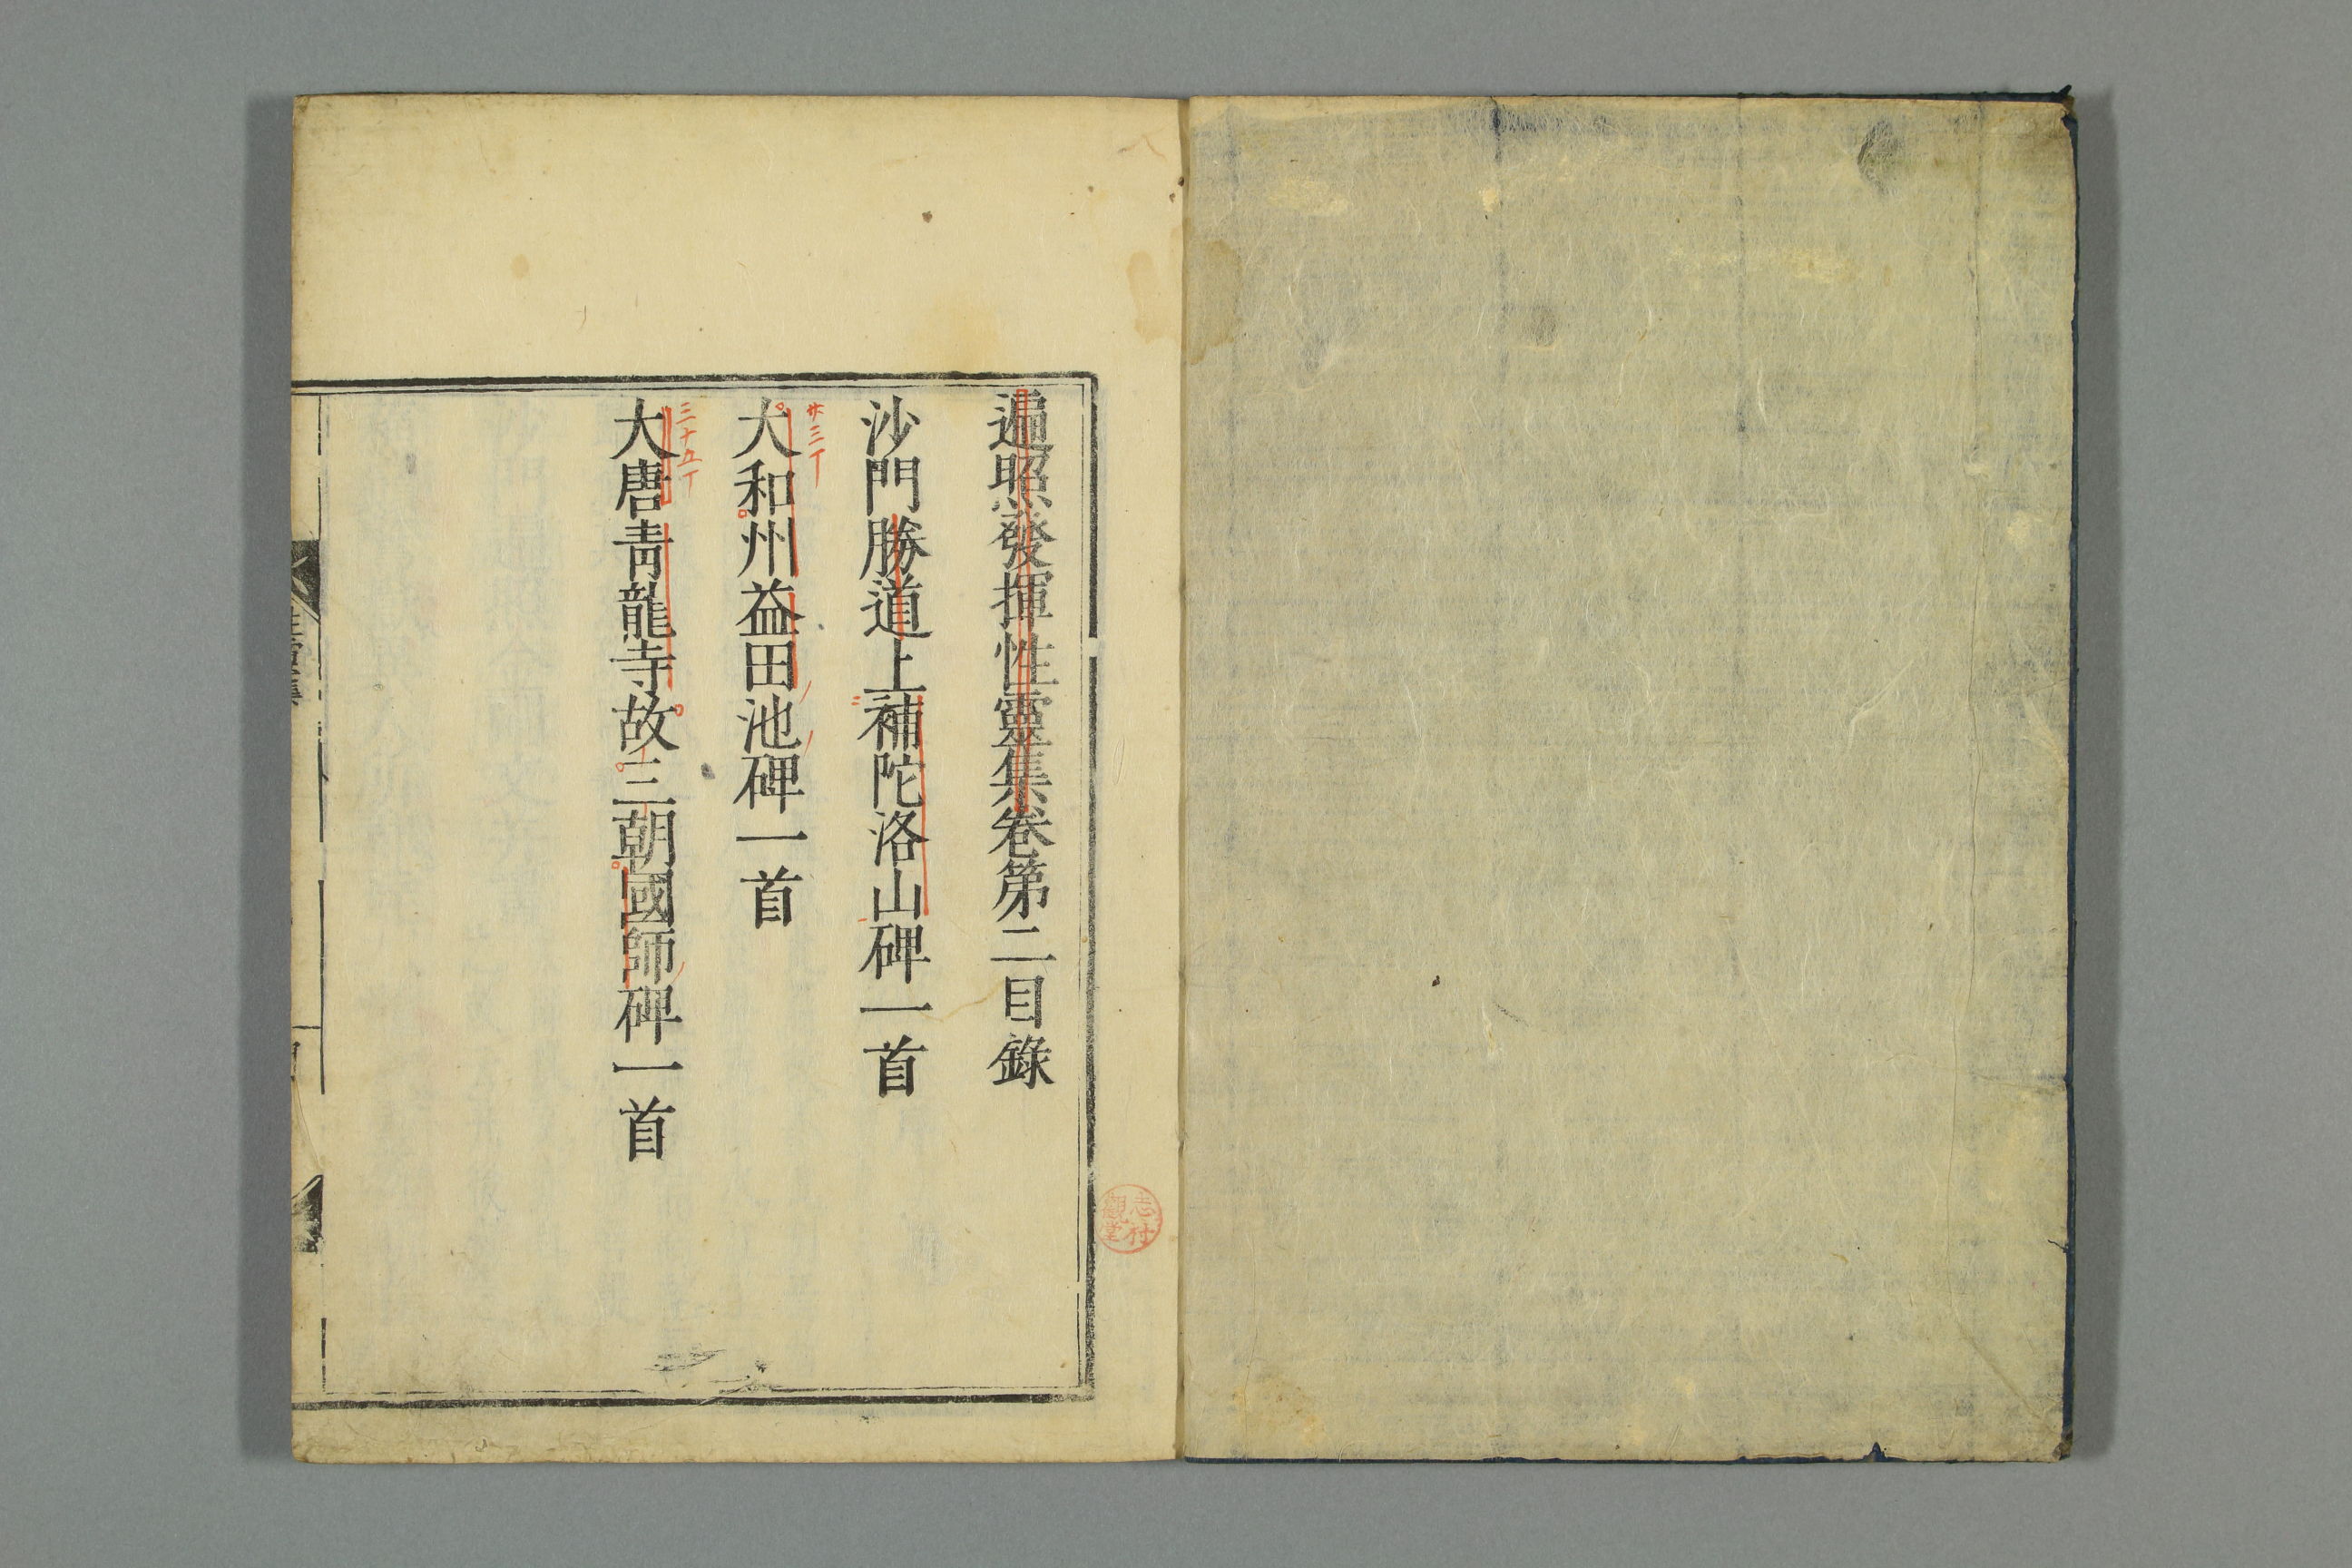 遍照發揮性靈集卷第二目錄
沙門勝道上補陀洛山碑一首
廿三丁
大和州益田池碑一首
三十五丁
大唐靑龍寺故三朝國師碑一首
性靈集
志村
觀堂